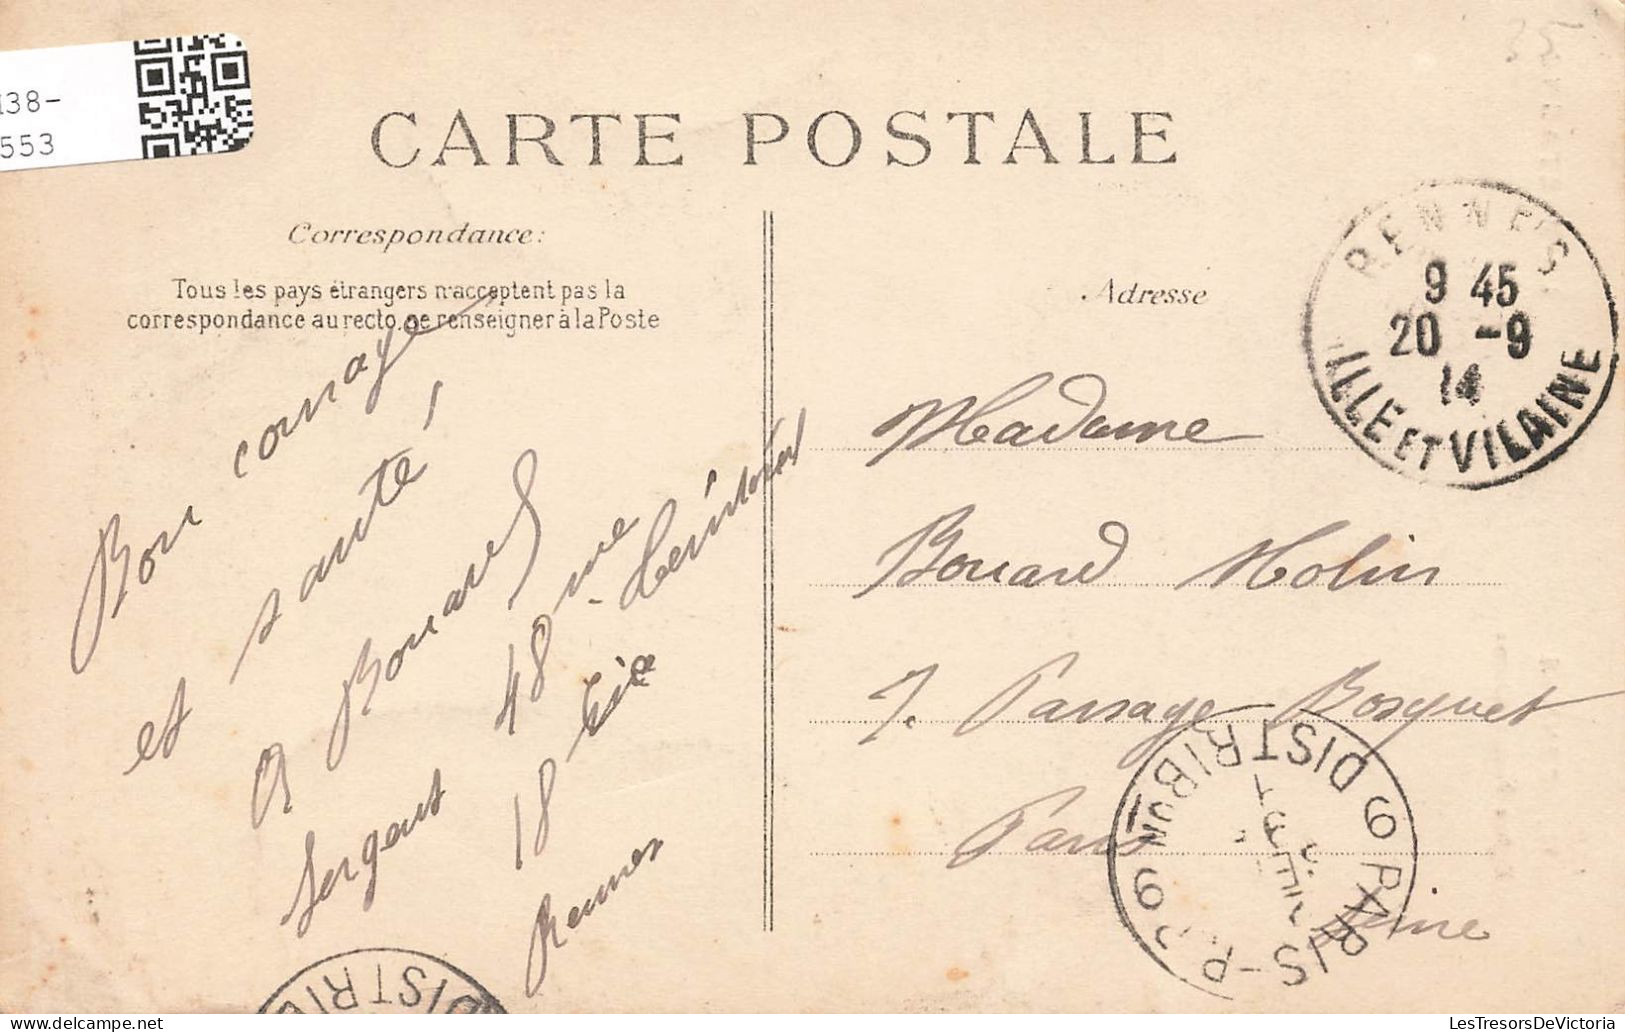 138-
553
35
CARTE POSTALE
Correspondance:
Tous les pays étrangers n'acceptent pas la
correspondance au recto, se renseigner à la Poste
Bon courage
et santé!
A Bouard
Sergent 48me
18 Cie
Rennes
Adresse
Madame
Bouard Molin
7. Passage Bosquet
Paris
Seine
RENNES
9 45
20 -9
14
ILLE ET VILAINE
DISTRIBUON
PARIS
DISTRIB
delcampe.net
LesTresorsDeVictoria